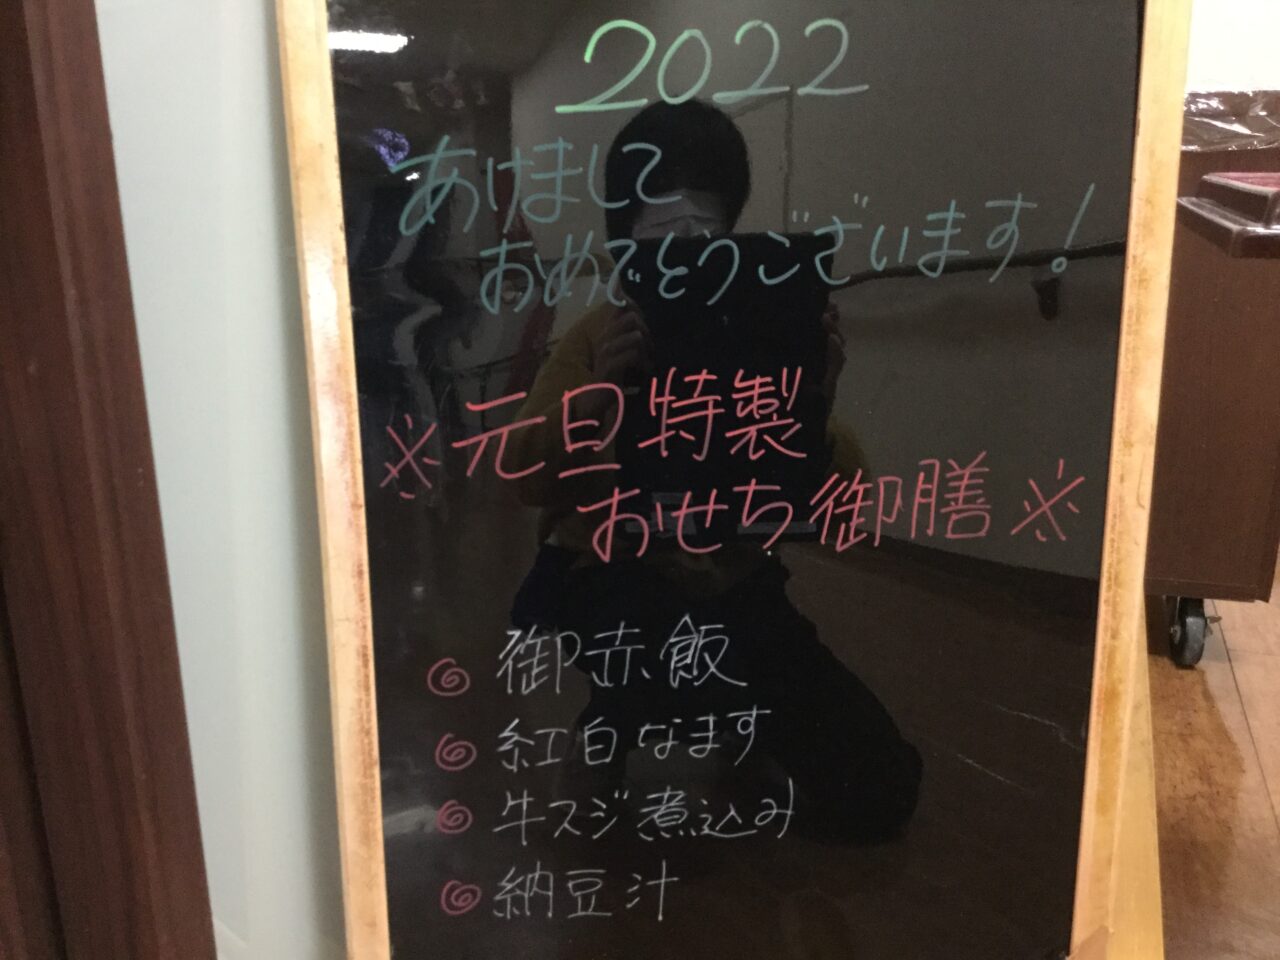 2022
あけまして
おめでとうございます!
※元旦特製
おせち御膳※
御赤飯
紅白なます
牛スジ煮込み
納豆汁